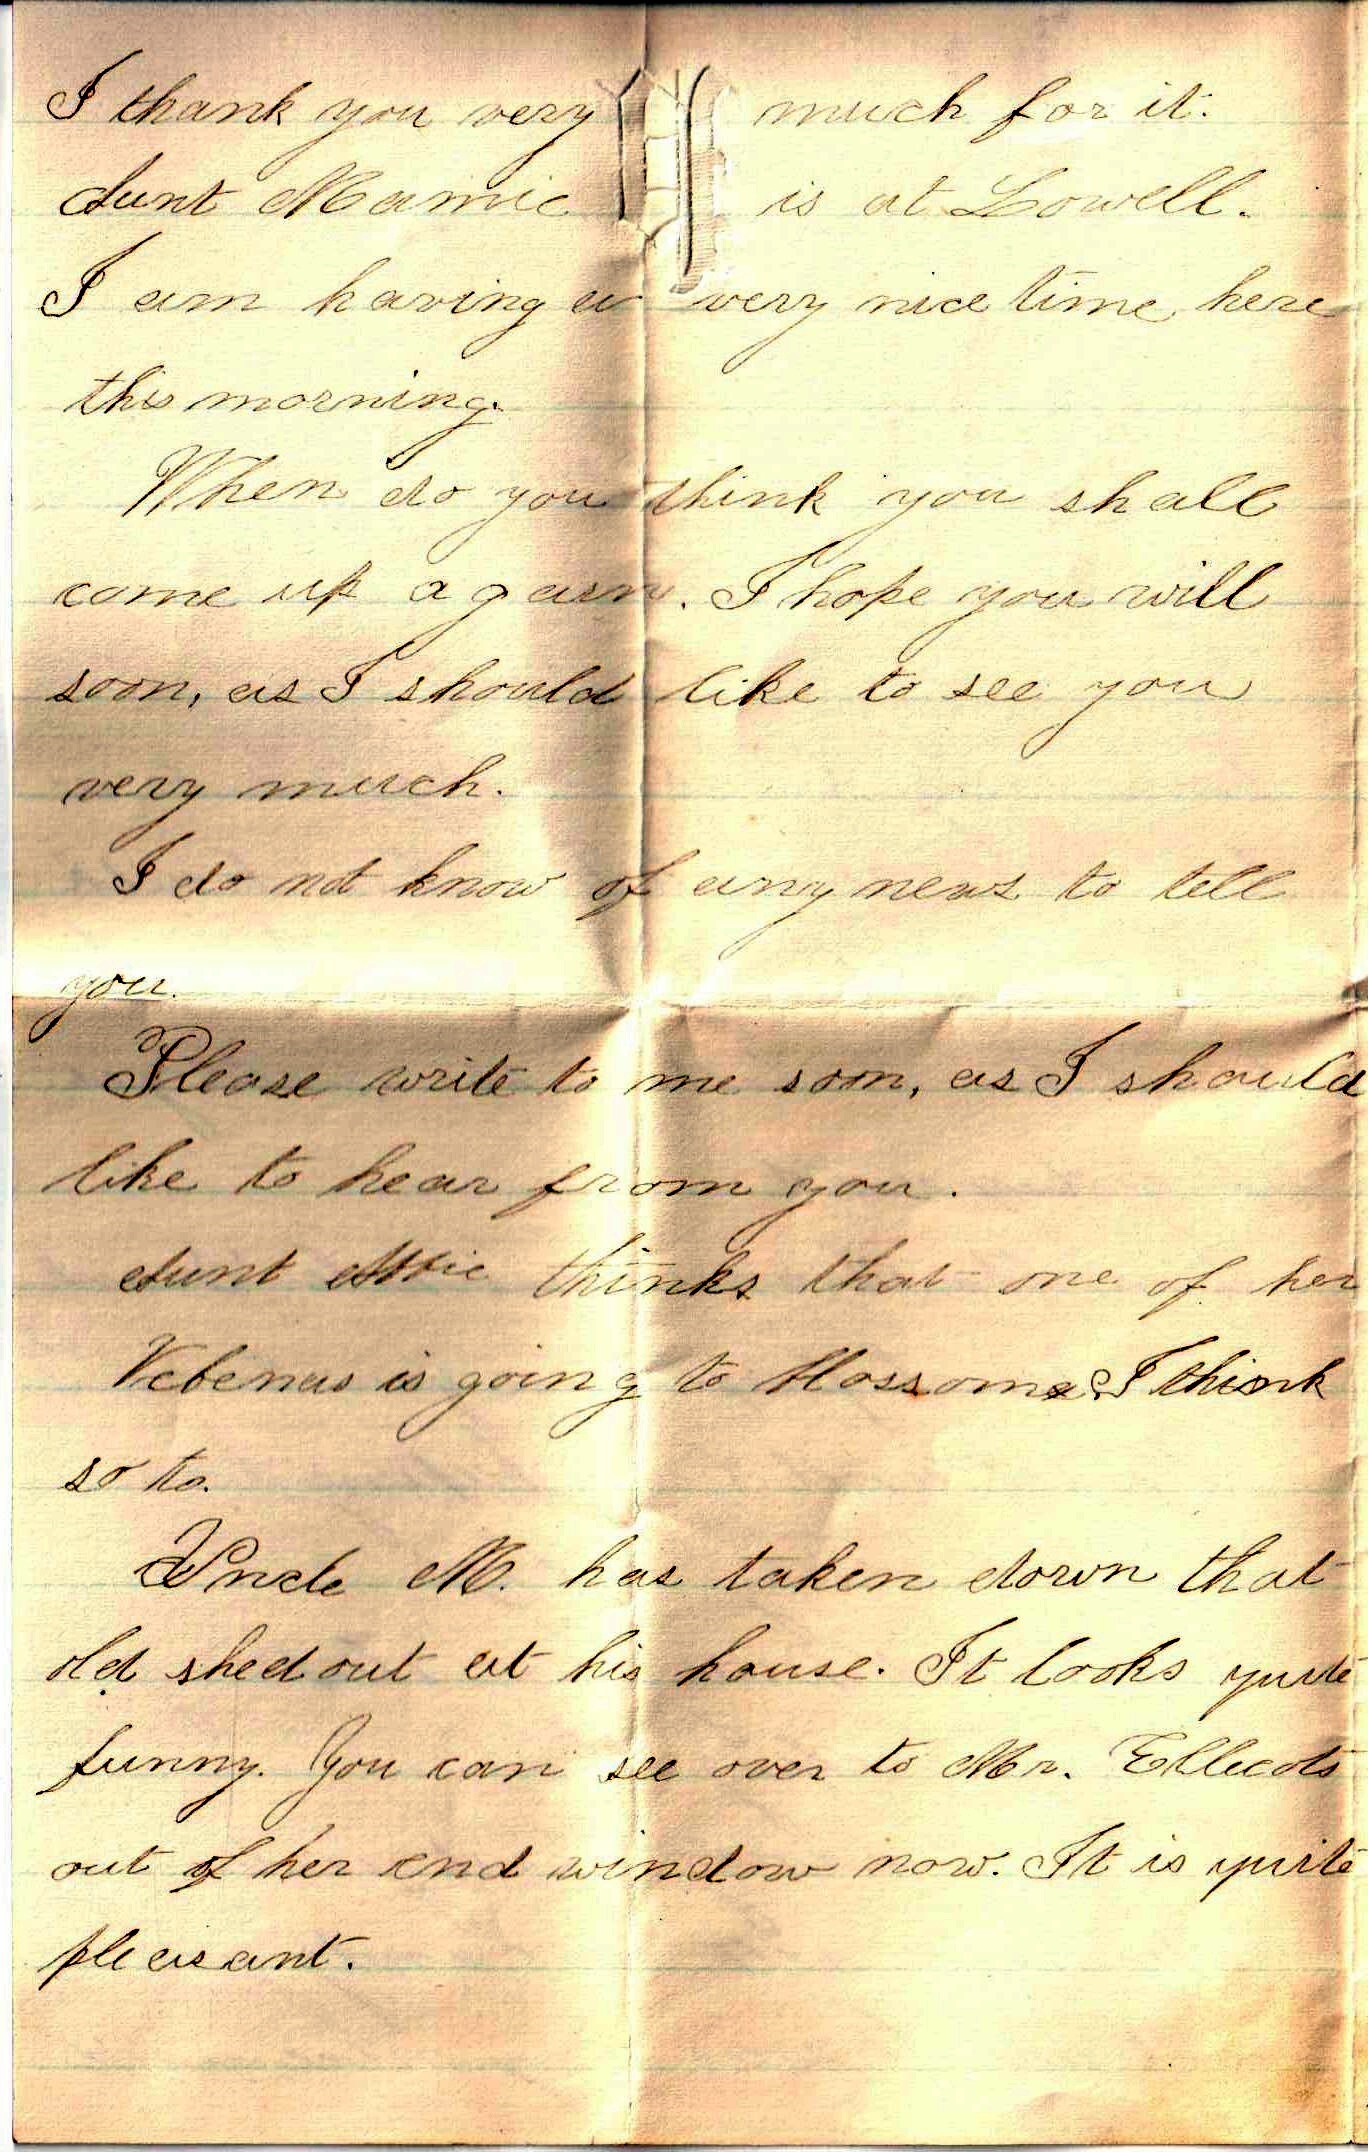 I thank you very much for it.
Aunt Mamie is at Lowell.
I am having a very nice time here
this morning.
When do you think you shall
come up again. I hope you will
soon, as I should like to see you
very much.
I do not know of any news to tell
you.
Please write to me soon, as I should
like to hear from you.
Aunt Abbie thinks that one of her
Vebenas is going to blossom. I think
so to.
Uncle M. has taken down that
old shed out at his house. It looks quite
funny. You can see over to Mr. Ellicots
out of her end window now. It is quite
pleasant.